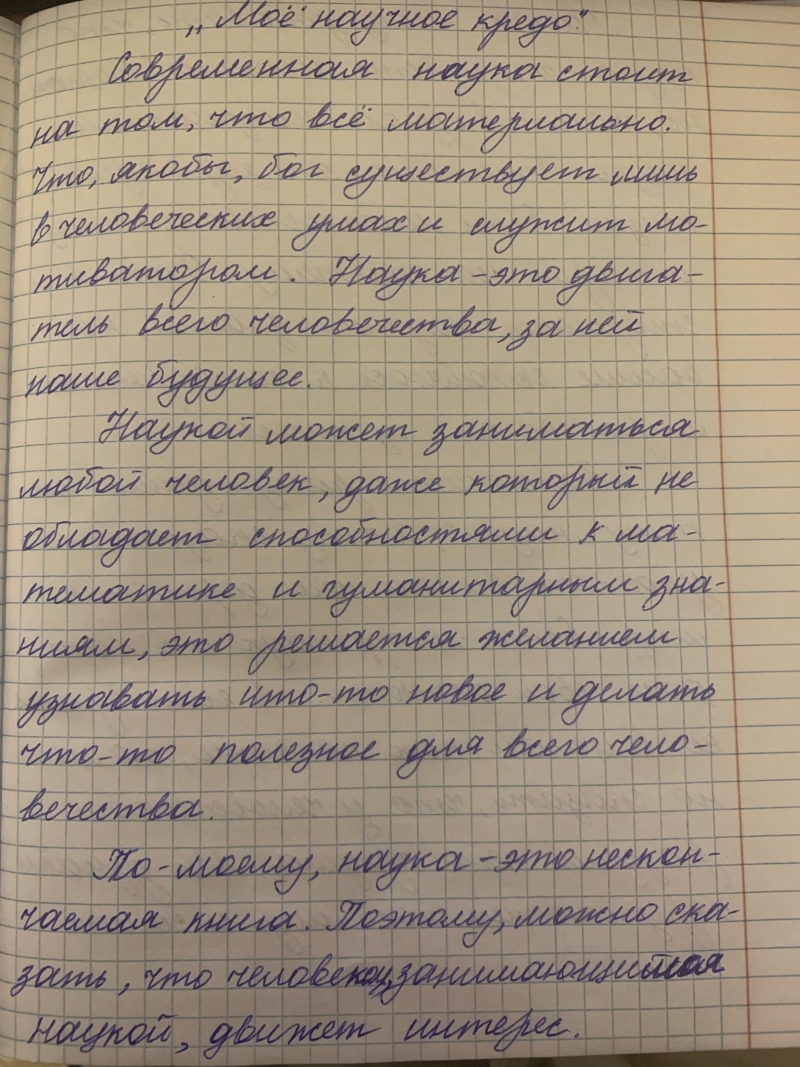 „Моё научное кредо."
Современная наука стоит
на том, что всё материально.
Что, якобы, бог существует лишь
в человеческих умах и служит мо-
тиватором. Наука – это двига-
тель всего человечества, за ней
наше будущее.
Наукой может заниматься
любой человек, даже который не
обладает способностями к ма-
тематике и гуманитарным зна-
ниям, это решается желанием
узнавать что-то новое и делать
что-то полезное для всего чело-
вечества.
По-моему, наука – это нескон-
чаемая книга. Поэтому, можно ска-
зать, что человеком, занимающимся
наукой, движет интерес.